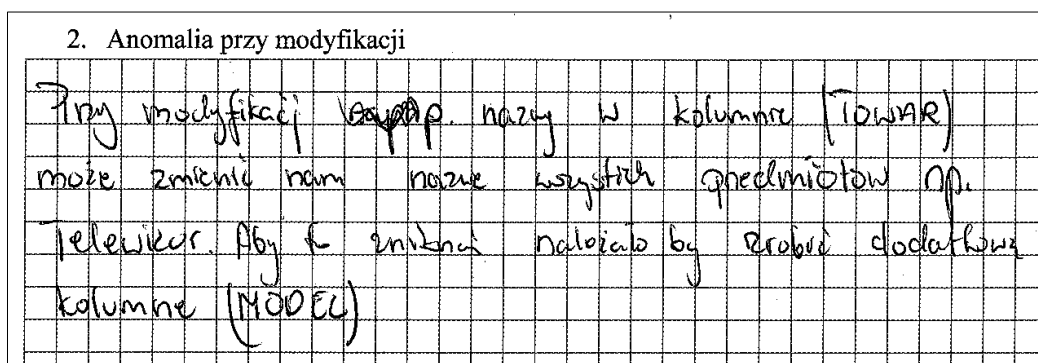 2. Anomalia przy modyfikacji
Przy modyfikacj np. nazwy w kolumnie (TOWAR)
może zmienić nam nazwe wszystkich przedmiotow np.
Telewizor. Aby należało by zrobić dodatkową
kolumnę (MODEL)